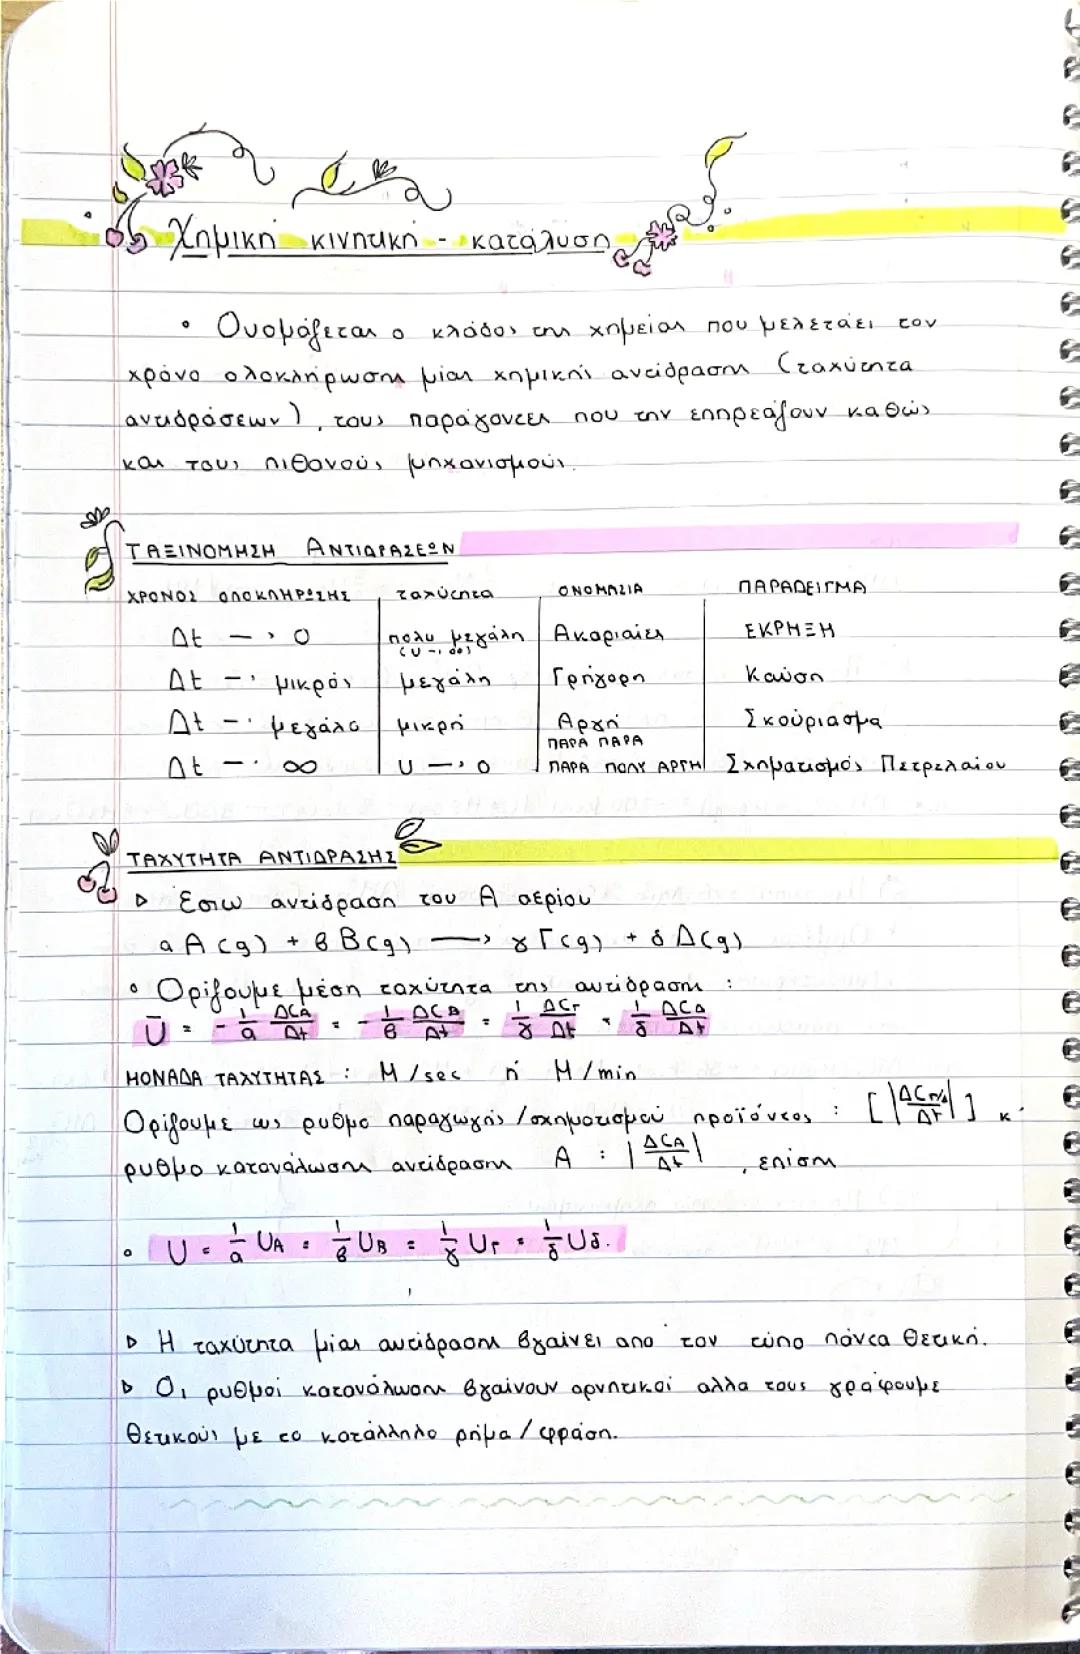 Χημική κινητική - κατάλυση
• Ονομάζεται ο κλάδος της χημείας που μελετάει τον
χρόνο ολοκλήρωσης μίας χημικής αντίδρασης (ταχύτητα
αντιδράσεων), τους παράγοντες που την επηρεάζουν καθώς
και τους πιθανούς μηχανισμούς.
ΤΑΞΙΝΟΜΗΣΗ ΑΝΤΙΔΡΑΣΕΩΝ
ΧΡΟΝΟΣ ΟΛΟΚΛΗΡΩΣΗΣ ταχύτητα ΟΝΟΜΑΣΙΑ ΠΑΡΑΔΕΙΓΜΑ
Δt → 0 πολυ μεγάλη (υ→∞) Ακαριαίες ΕΚΡΗΞΗ
Δt → μικρός μεγάλη Γρήγορη Καύση
Δt → μεγάλο μικρή Αργή Σκούριασμα
ΠΑΡΑ ΠΑΡΑ
Δt → ∞ υ → 0 ΠΑΡΑ ΠΟΛΥ ΑΡΓΗ Σχηματισμός Πετρελαίου
ΤΑΧΥΤΗΤΑ ΑΝΤΙΔΡΑΣΗΣ
▷ Έστω αντίδραση του Α αερίου
αA(g) + βB(g) → γΓ(g) + δΔ(g)
• Ορίζουμε μέση ταχύτητα της αντίδρασης :
Ū = -1/α ΔCA/Δt = -1/β ΔCB/Δt = 1/γ ΔCΓ/Δt = 1/δ ΔCΔ/Δt
ΜΟΝΑΔΑ ΤΑΧΥΤΗΤΑΣ : M/sec ή M/min
Ορίζουμε ως ρυθμό παραγωγής/σχηματισμού προϊόντος : κ·
ρυθμό κατανάλωσης αντίδρασης A : |ΔCA/Δt| , επίσης
• U = 1/α UA = 1/β UB = 1/γ UΓ = 1/δ Uδ.
▷ Η ταχύτητα μίας αντίδρασης βγαίνει απο τον τύπο πάντα θετική.
▷ Οι ρυθμοί κατανάλωσης βγαίνουν αρνητικοί αλλα τους γράφουμε
θετικούς με το κατάλληλο ρήμα/φράση.